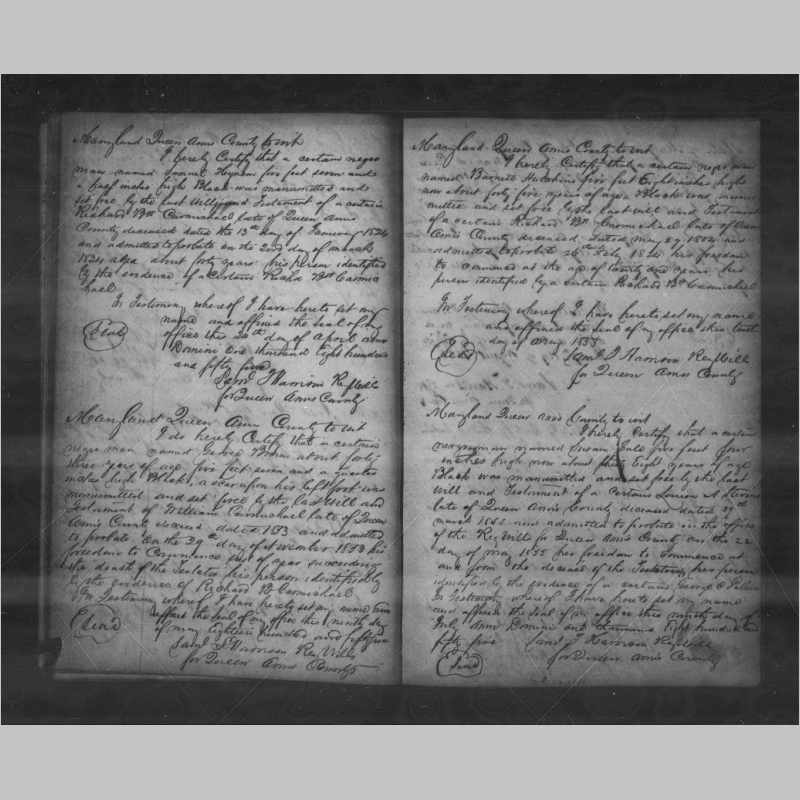 Maryland Queen Anns County to wit
I hereby Certify that a certain negro
man named Hynson five feet seven and
a half inches high Black was manumitted and
set free by the last Will and Testament of a certain
Richard Bt Carmichael late of Queen Anns
County deceased dated the 13th day of January 1824
and admitted to probate on the 2nd day of march
1824 aged about forty years his person identified
by the evidence of a certain Richd Bt Carmic
hael
In Testimony whereof I have hereto set my
name and affixed the seal of my
office this day of April anno
Domini One thousand Eight hundred
and fifty five
Saml T Harrison Reg Will
for Queen Anns County
Seal
Maryland Queen Ann County to wit
I do hereby Certify that a certain
negro man named George about forty
three years of age five feet seven and a quarter
inches high Black, a scar upon his left foot was
manumitted and set free by the last Will and
Testament of William Carmichael late of Queen
Anns County deceased dated 1853 and admitted
to probate on the 29th day of November 1853 his
freedom to Commence
the death of the Testator his person identified
by the evidence of Richard B Carmichael
In Testimony whereof I have hereto set my name and
affixed the Seal of my office this ninth day
of may eighteen hundred and fifty five
Saml T Harrison Reg Wills
for Queen Anns County
Seal
Maryland Queen Anns County to wit
I hereby Certify that a certain negro man
named Hutchins five feet Eight inches high
now about forty five years of age Black was manu
mitted and set free by the last will and Testament
of a certain Richard Bt Carmichael late of Queen
Anns County deceased dated and
admitted to probate July 1824 his freedom
to commence at the age of years his
person identified by a certain Richard Bt Carmichael
In Testimony whereof I have hereto set my name
and affixed the seal of my office this tenth
day of may 1855
Saml T Harrison Reg Will
for Queen Anns County
Seal
Maryland Queen Anns County to wit
I hereby Certify that a certain
negro woman named Susan five feet four
inches high now about eight years of age
Black was manumitted and set free by the last
Will and Testament of a certain
late of Queen Anns County deceased dated
march 1855 and admitted to probate in the office
of the Reg Will for Queen Anns County on the 22
day of may 1855 her freedom to commence at
and from the decease of the Testator her person
identified by the evidence of a certain George Palmer
In Testimony whereof I have hereto set my name
and affixed the Seal of my office this ninth day of
July Anno Domini one thousand Eight hundred and
fifty five Saml T Harrison Reg Will
for Queen Anns County
Seal